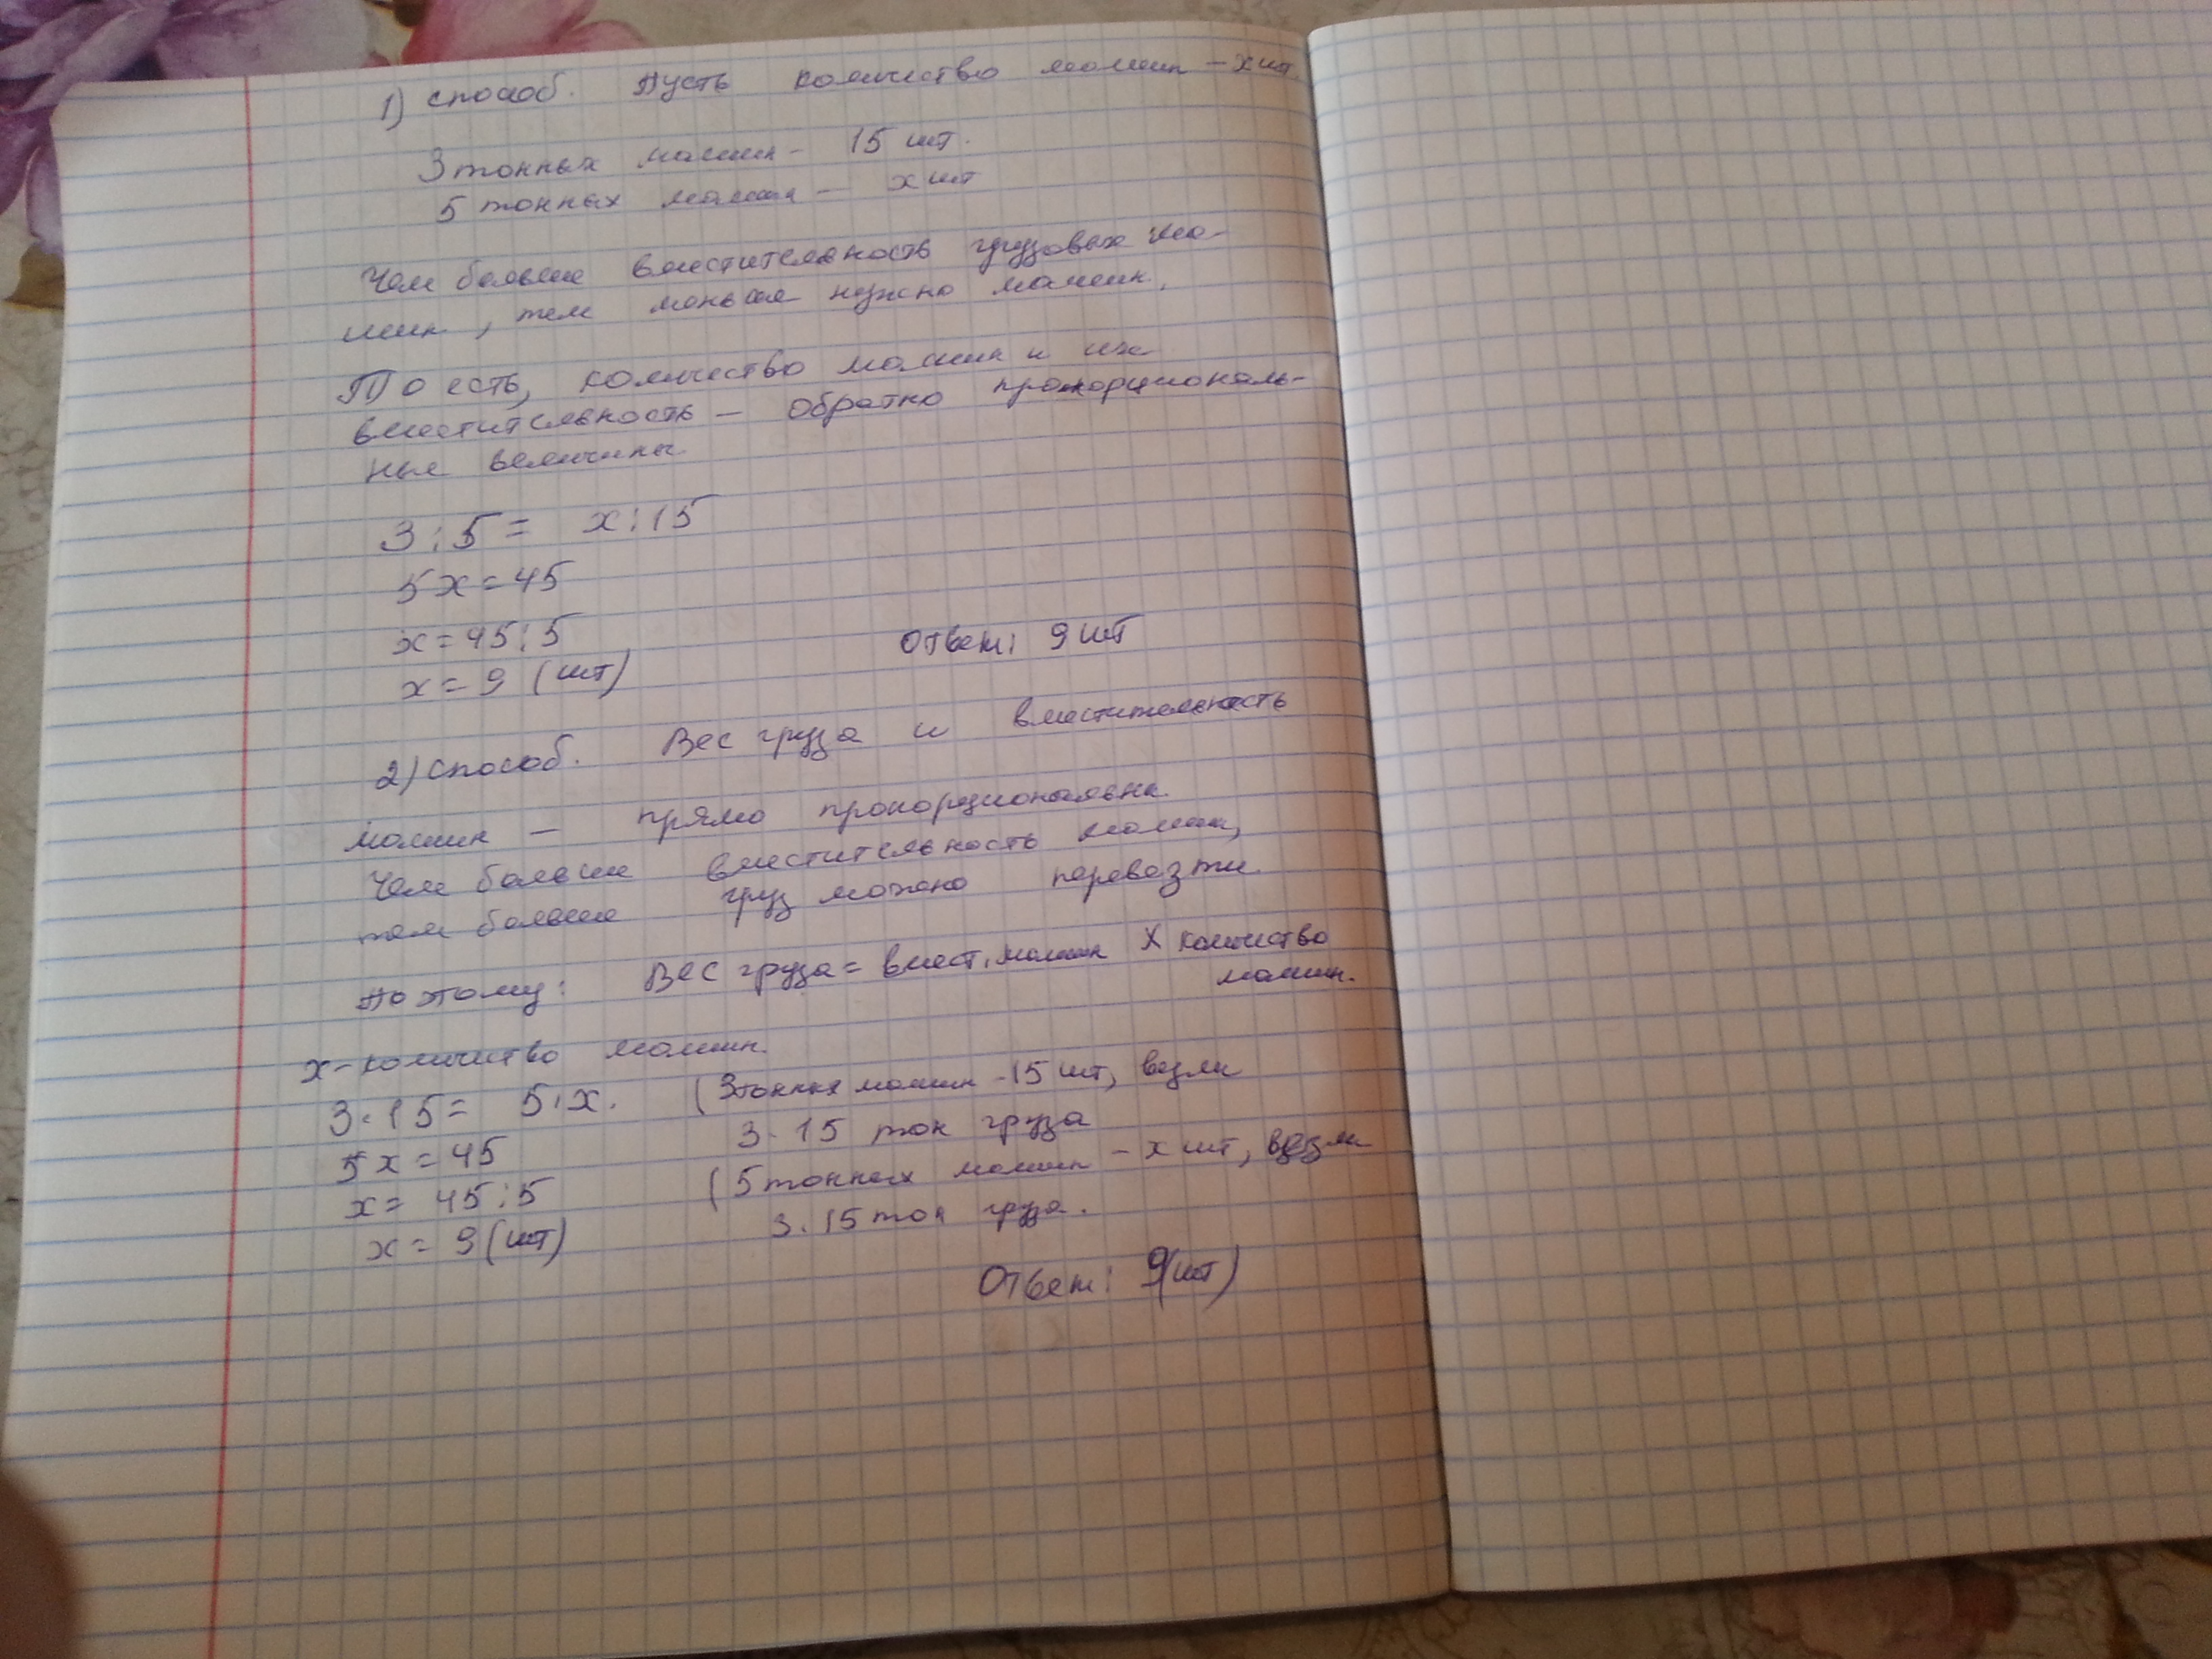 1) способ. Пусть количество машин – x шт.
3 тонных машин – 15 шт.
5 тонных машин – x шт
Чем больше вместительность грузовых ма-
шин, тем меньше нужно машин.
То есть, количество машин и их
вместительность – обратно пропорциональ-
ные величины.
3:5 = x:15
5x = 45
x = 45:5
x = 9 (шт)
Ответ: 9 шт
2) способ. Вес груза и вместительность
машин – прямо пропорциональны.
Чем больше вместительность машин,
тем больше груз можно перевозти.
Поэтому: Вес груза = вмест. машин X количество
машин.
x – количество машин.
3·15 = 5·x. (3тонных машин – 15 шт, везли
3·15 тон груза
5x = 45
(5тонных машин – x шт, везли
x = 45:5
3·15 тон груза.
x = 9 (шт)
Ответ: 9(шт)